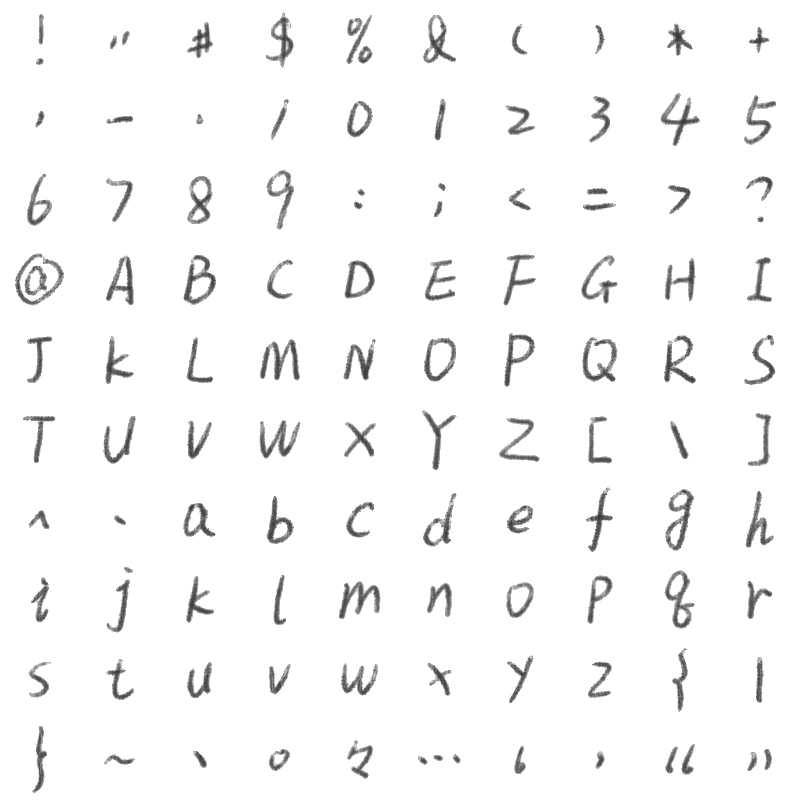 ! " # $ % & ( ) * +
, - . / 0 1 2 3 4 5
6 7 8 9 : ; < = > ?
@ A B C D E F G H I
J K L M N O P Q R S
T U V W X Y Z [ \ ]
^ ` a b c d e f g h
i j k l m n o p q r
s t u v w x y z { |
} ~ 、 。 々 … ‘ ’ “ ”